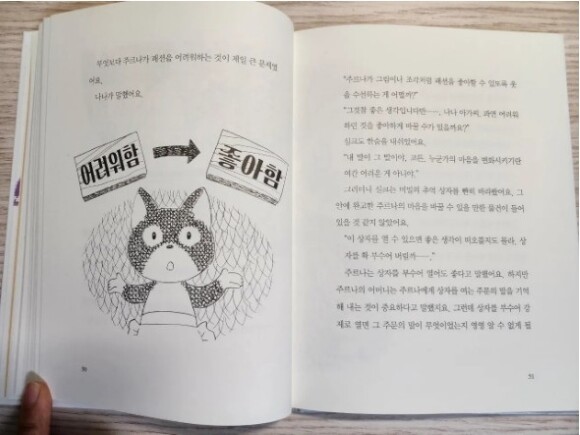 무엇보다 주르나가 패션을 어려워하는 것이 제일 큰 문제였
어요.
나나가 말했어요.
어려워함
좋아함
"주르나가 그림이나 조각처럼 패션을 좋아할 수 있도록 옷
을 수선하는 게 어떨까?"
"그것참 좋은 생각입니다만……, 나나 아가씨, 과연 어려워
하던 것을 좋아하게 바꿀 수가 있을까요?"
싱크도 한숨을 내쉬었어요.
"내 말이 그 말이야, 코튼. 누군가의 마음을 변화시키기란
여간 어려운 게 아니야."
그러더니 싱크는 비밀의 추억 상자를 빤히 바라봤어요. 그
안에 완고한 주르나의 마음을 바꿀 수 있을 만한 물건이 들어
있을 것 같지 않았어요.
"이 상자를 열 수 있으면 좋은 생각이 떠오를지도 몰라. 상
자를 확 부수어 버릴까……."
주르나는 상자를 부수어 열어도 좋다고 말했어요. 하지만
주르나의 어머니는 주르나에게 상자를 여는 주문의 말을 기억
해 내는 것이 중요하다고 말했지요. 그런데 상자를 부수어 강
제로 열면 그 주문의 말이 무엇이었는지 영영 알 수 없게 될